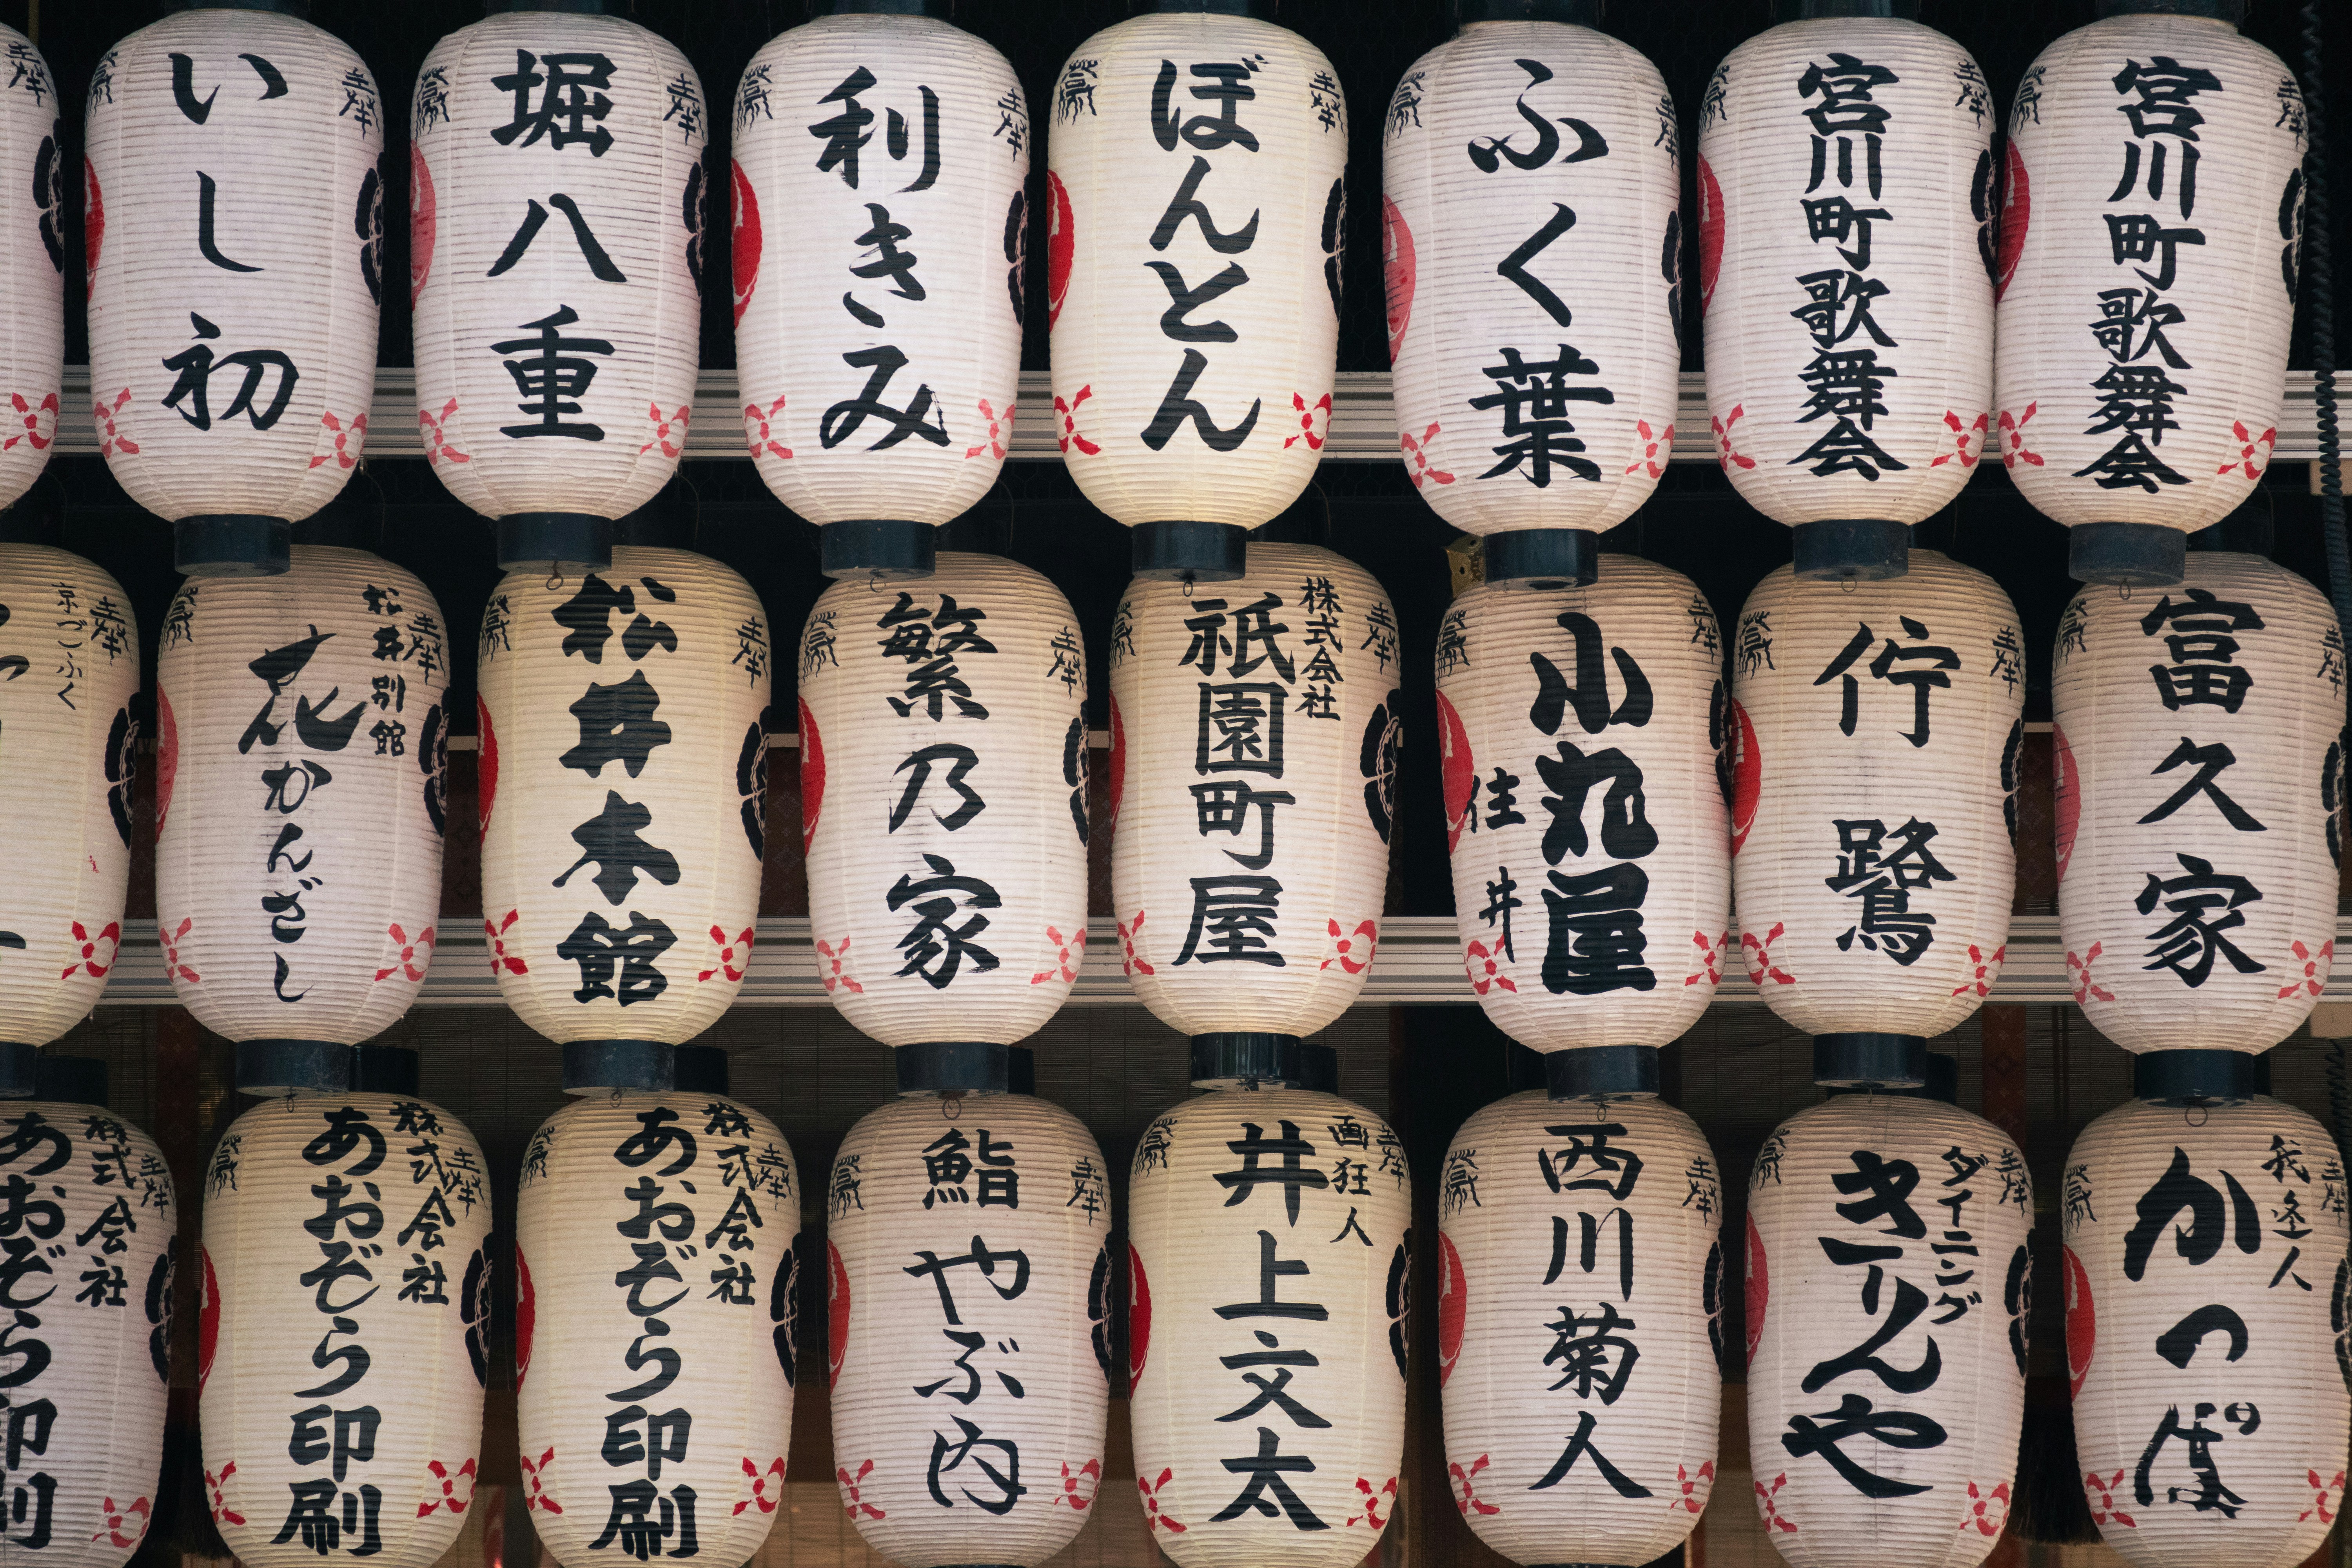 いし初
堀八重
利きみ
ぼんとん
ふく葉
宮川町歌舞会
宮川町歌舞会
京ごふく
松井別館
花かんざし
松井本館
繁乃家
株式会社
祇園町屋
小丸屋
住井
佇鷺
富久家
株式会社
あおぞら印刷
株式会社
あおぞら印刷
株式会社
あおぞら印刷
鮨
やぶ内
画狂人
井上文太
西川菊人
ダイニング
きりんや
我逢人
かつぽ